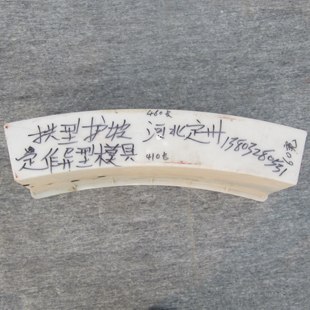 460长
拱型护坡 河北定州
定作异型模具
410长
宽60